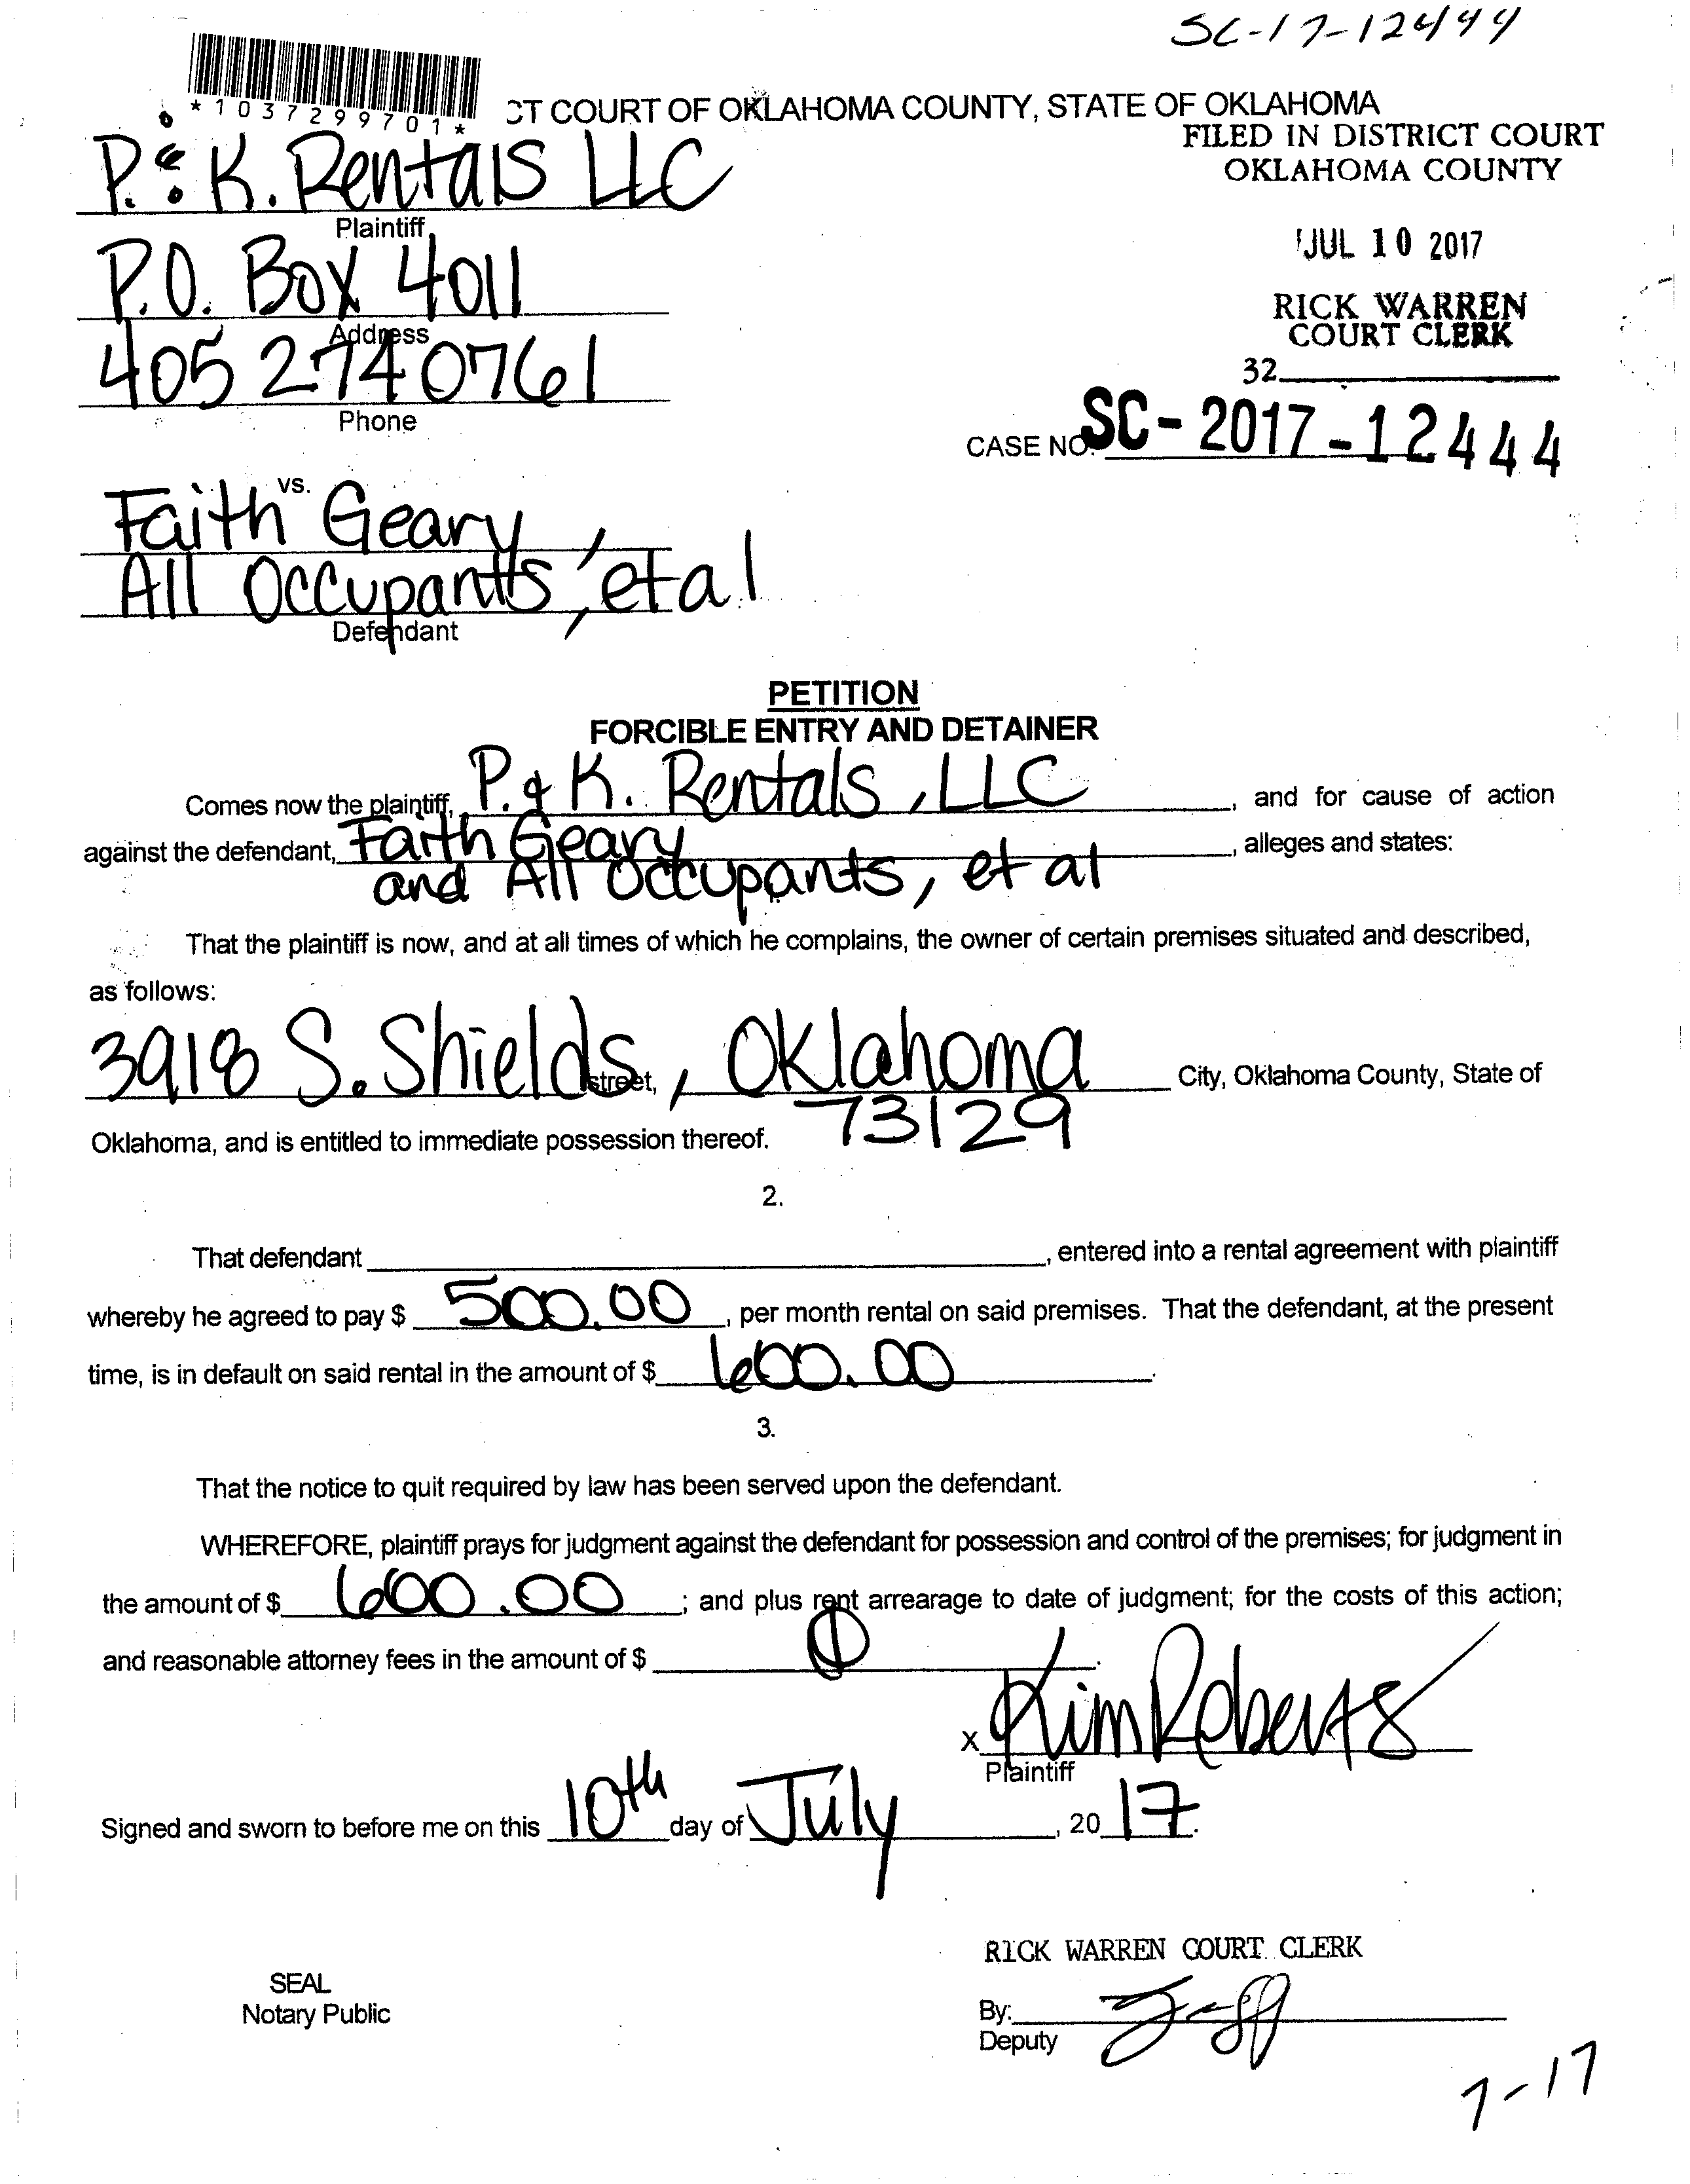 SC-17-12444
*1037299701*
CT COURT OF OKLAHOMA COUNTY, STATE OF OKLAHOMA
FILED IN DISTRICT COURT
OKLAHOMA COUNTY
JUL 10 2017
RICK WARREN
COURT CLERK
32
CASE NO. SC-2017-12444
P. & K. Rentals LLC
Plaintiff
P.O. Box 4011
Address
405 274 0761
Phone
vs.
Faith Geary,
All Occupants, et al
Defendant
PETITION
FORCIBLE ENTRY AND DETAINER
Comes now the plaintiff, P. & K. Rentals, LLC, and for cause of action
against the defendant, Faith Geary, alleges and states:
and All Occupants, et al
That the plaintiff is now, and at all times of which he complains, the owner of certain premises situated and described,
as follows:
3918 S. Shields street, Oklahoma City, Oklahoma County, State of
73129
Oklahoma, and is entitled to immediate possession thereof.
2.
That defendant, entered into a rental agreement with plaintiff
whereby he agreed to pay $ 500.00, per month rental on said premises. That the defendant, at the present
time, is in default on said rental in the amount of $ 600.00.
3.
That the notice to quit required by law has been served upon the defendant.
WHEREFORE, plaintiff prays for judgment against the defendant for possession and control of the premises; for judgment in
the amount of $ 600.00; and plus rent arrearage to date of judgment; for the costs of this action;
and reasonable attorney fees in the amount of $ 0.
x Kim Roberts
Plaintiff
Signed and sworn to before me on this 10th day of July, 2017.
RICK WARREN COURT CLERK
SEAL
Notary Public
By:
Deputy
7-17